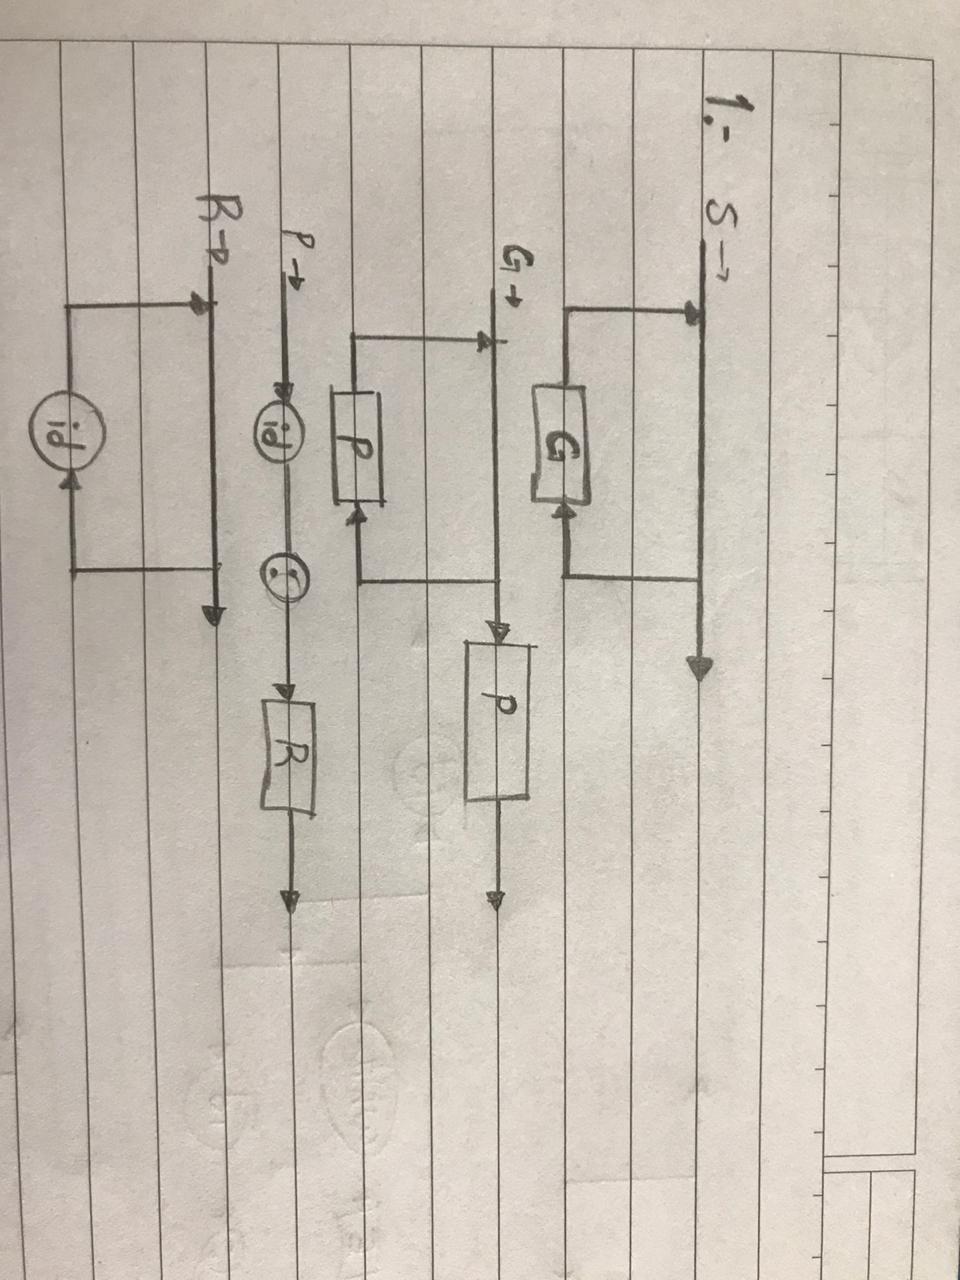 1.- S →
G
G →
P
P
P → id : R
R →
id